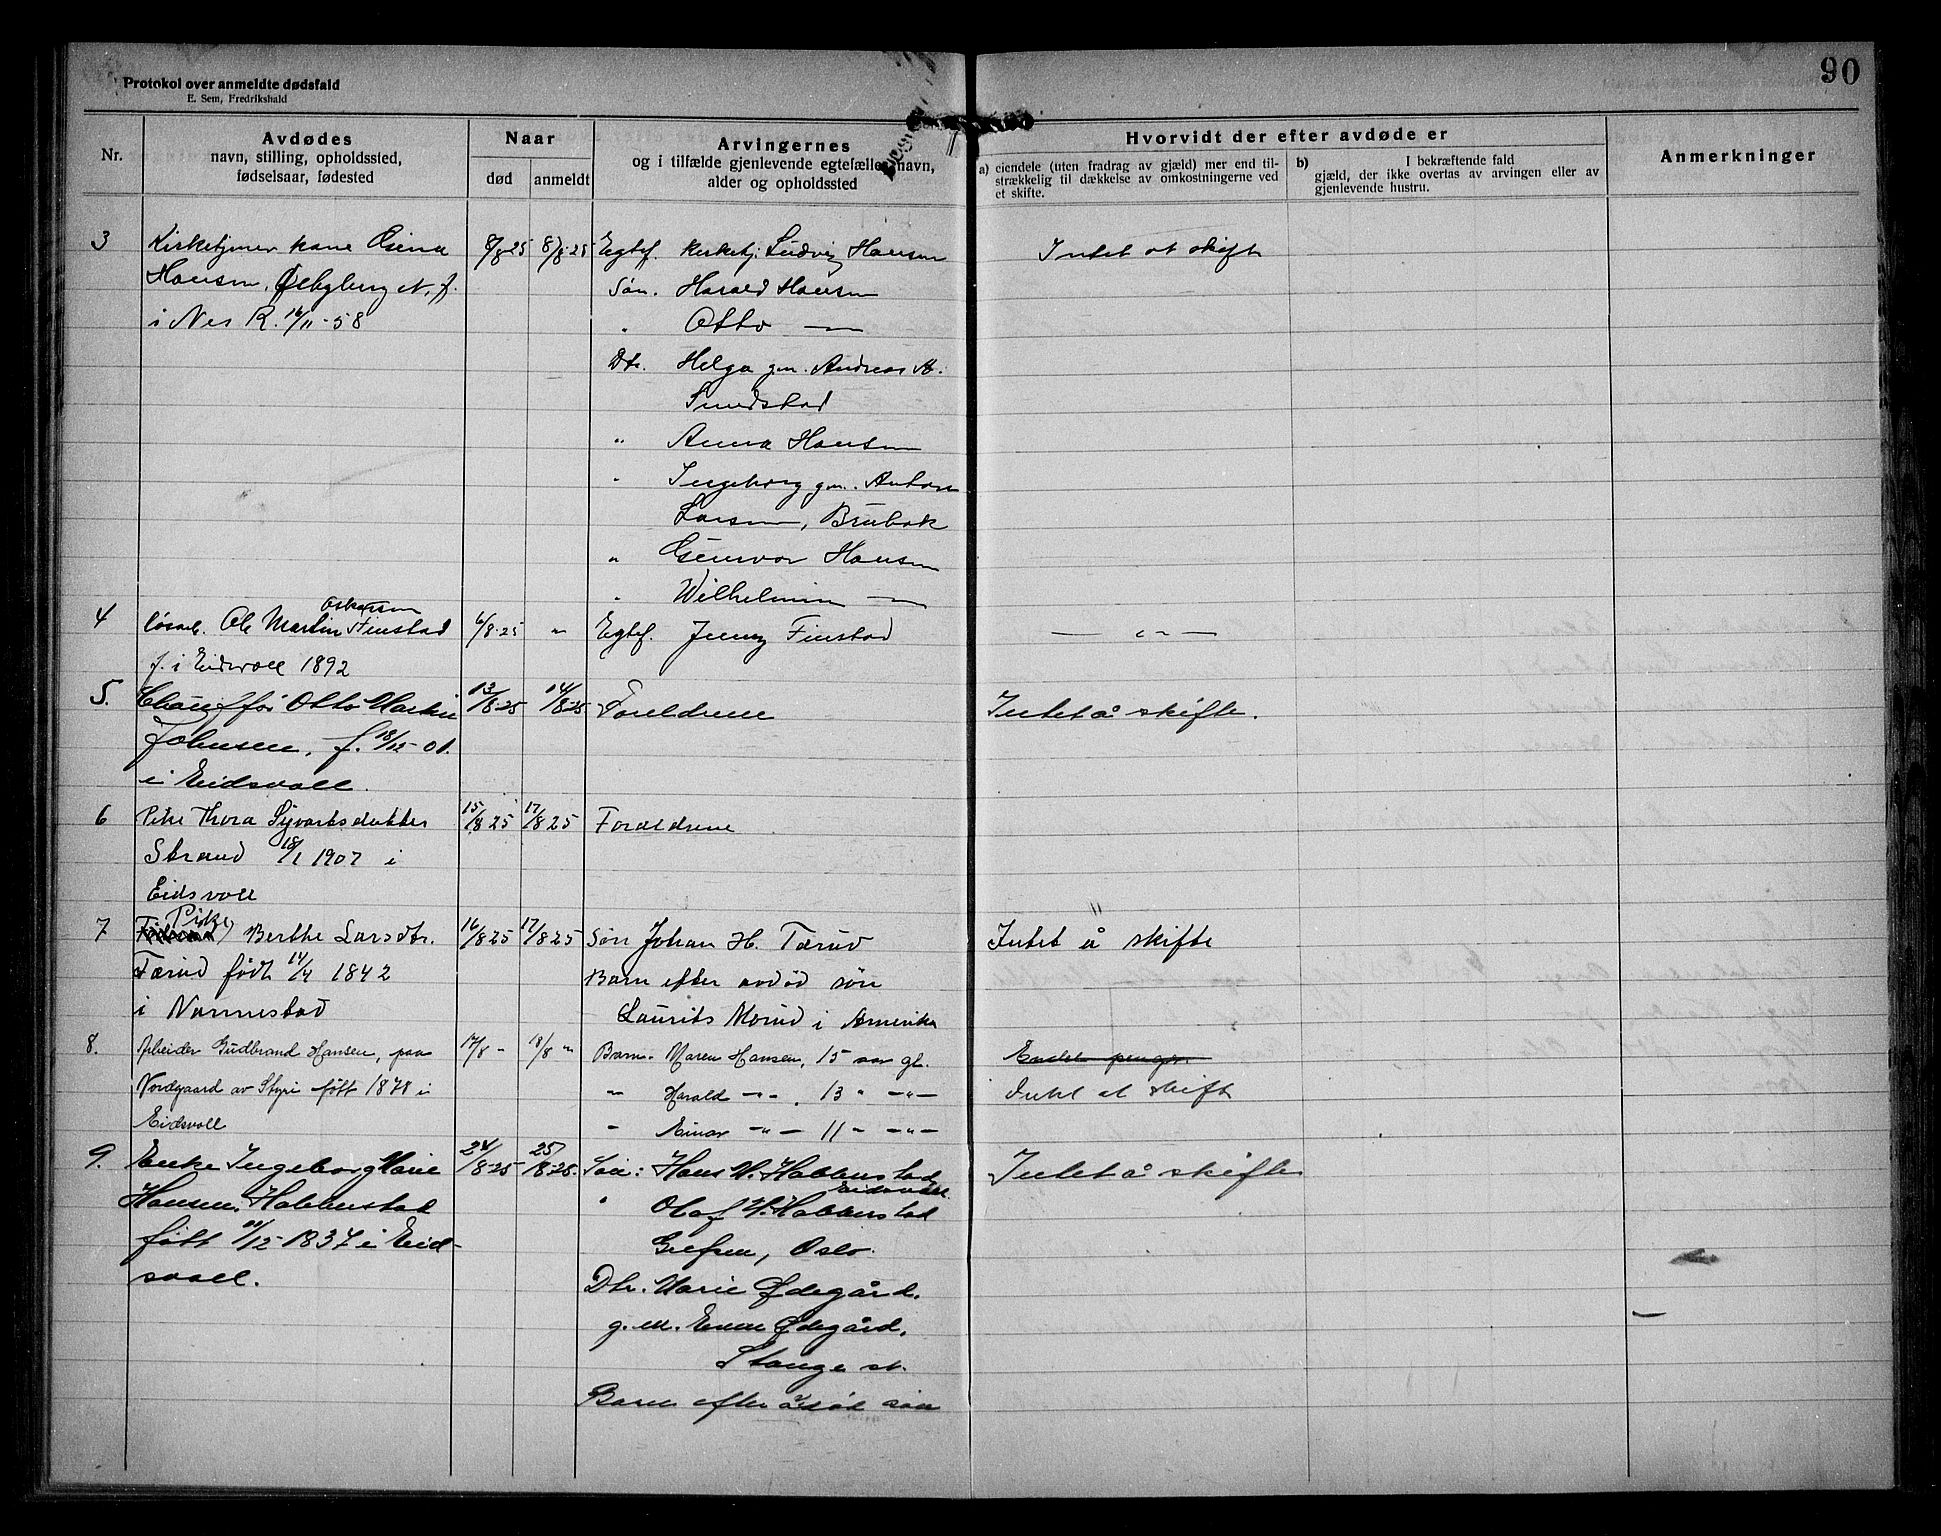 90
Protokol over anmeldte dødsfald
E. Sem, Fredrikshald
Nr.
Avdødes
navn, stilling, opholdssted,
fødselsaar, fødested
Naar
død
anmeldt
Arvingernes
og i tilfælde gjenlevende egtefælles navn,
alder og opholdssted
Hvorvidt der efter avdøde er
a) eiendele (uten fradrag av gjæld) mer end til-
strækkelig til dækkelse av omkostningerne ved
et skifte.
b) I bekræftende fald
gjæld, der ikke overtas av arvingen eller av
gjenlevende hustru.
Anmerkninger
3 Kirketjener kone Osina 8/8-25 8/8-25 Egtef. Kirketj. Ludvig Hansen Intet at skift
Hansen, N, f. Søn. Harald Hansen
i Nes R. 16/11-58 " Otto —
Dtr. Helga gm. Andreas A.
Smedstad
" Anna Hansen
" Ingeborg gm. Anton
Larsen, Brubak
" Gunvor Hansen
" Wilhelmine —
Oskarsen
4 løsarb. Ole Martin Finstad 6/8-25 " Egtef. Jenny Finstad — " —
f. i Eidsvoll 1892
5. Chauffør Otto Martin 13/8-25 14/8-25 Foreldrene Intet å skifte.
Johnsen, f. 18/12-01.
i Eidsvoll.
6 Pike Thora Syvertsdatter 15/8 25 17/8 25 Foreldrene
Strand 18/1 1907 i
Eidsvoll "
Pike
7 Berthe Larsdtr. 16/8 25 17/8 25 Søn Johan H. Tærud Intet å skifte
Tærud født 14/4 1842 Barn efter avdød søn
i Nannestad Laurits Morud i Amerika
8. Arbeider Gudbrand Hansen, paa 17/8 " 18/8 " Barn. Maren Hansen, 15 aar gl. Endel penger
Nordgaard av Styri født 1878 i " Harald — " — , 13 " — " — Intet at skift
Eidsvoll " Einar — " — 11 " — " —
9. Enke Ingeborg Marie 24/8-25 25/8-25. Søn: Hans H. Habberstad Intet å skifte
Eidsvoll.
Hansen, Habberstad " Olaf H. Habberstad
født 21/12-1837 i Eid- Grefsen, Oslo.
svoll. Dtr. Marie Ødegård.
g. m. Even Ødegård,
Stange st.
Barn efter avdød søn